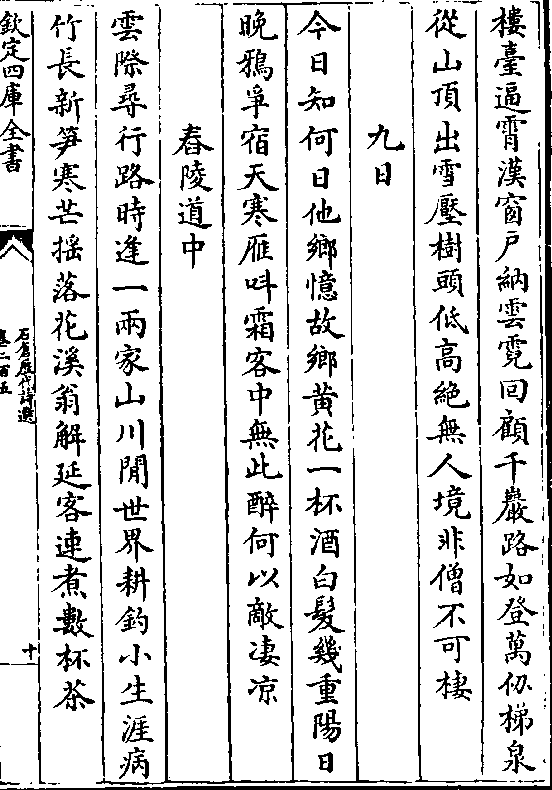 樓臺逼霄漢窗戶納雲霓回顧千巖路如登萬仭梯泉
從山頂出雪壓樹頭低高絶無人境非僧不可棲
九日
今日知何日他鄉憶故鄉黄花一杯酒白髮幾重陽日
晚鴉爭宿天寒雁呌霜客中無此醉何以敵凄凉
舂陵道中
雲際尋行路時逢一兩家山川閒世界耕釣小生涯病
竹長新笋寒芒揺落花溪翁解延客連煮數杯茶
欽定四庫全書
石倉歷代詩選
卷二百五
十